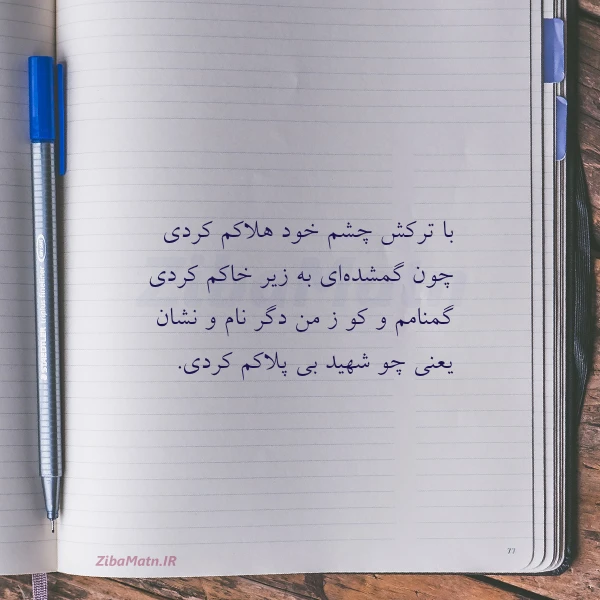 با ترکش چشم خود هلاکم کردی
چون گمشده‌ای به زیر خاکم کردی
گمنامم و کو ز من دگر نام و نشان
یعنی چو شهید بی پلاکم کردی.
ZibaMatn.IR